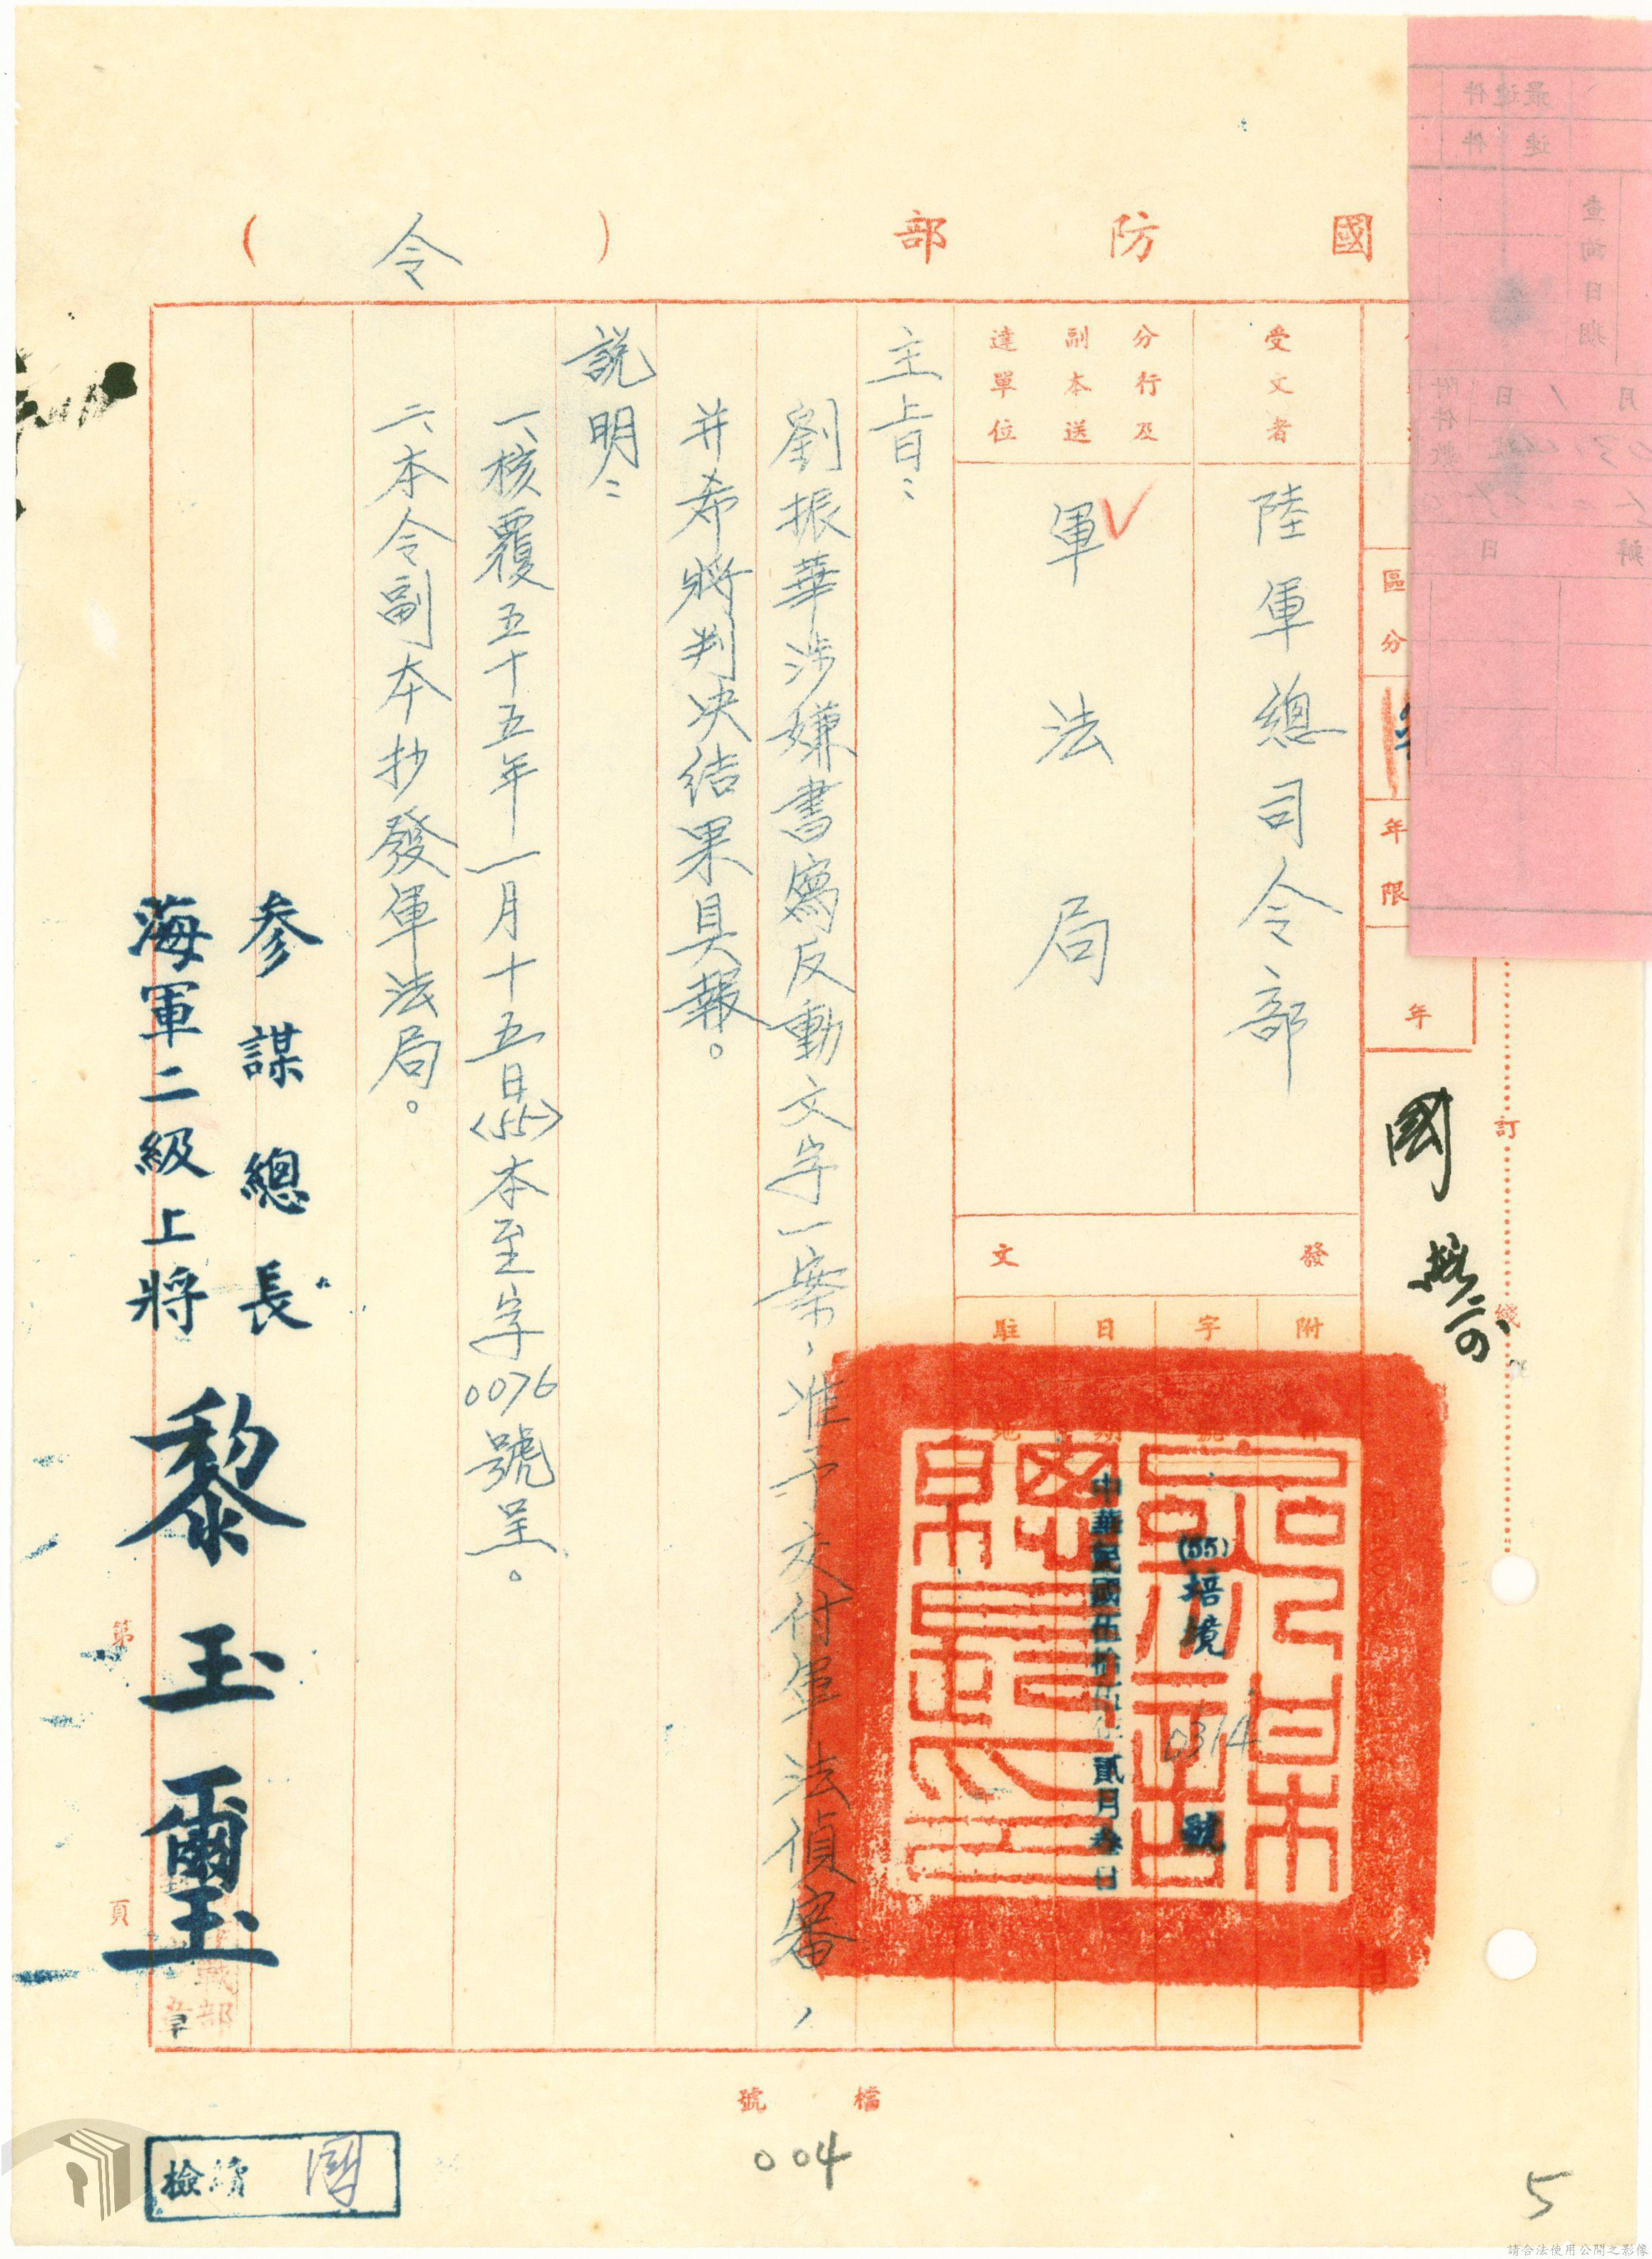 國防部（令）
區分
年限
年
受文者
陸軍總司令部
分行及
副本送
達單位
軍法局
發文
附
字
日
駐
(55)培境0314號
中華民國伍拾伍年貳月叁日
主旨：
劉振華涉嫌書寫反動文字一案，准予交付軍法偵審，
并希將判决結果具報。
說明：
一、核覆五十五年一月十五日〈55〉本至字0076號呈。
二、本令副本抄發軍法局。
參謀總長
海軍二級上將
黎玉璽
第
頁
訂
綫
檔號
004
5
最速件
速件
查詢日期
附件數
請合法使用公開之影像